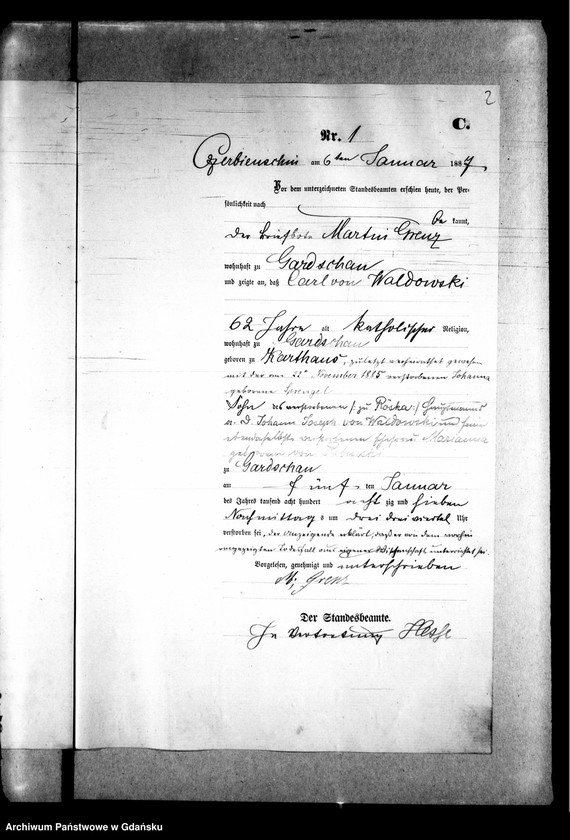 2
C.
Nr. 1
Czerbienschin am 6ten Januar 1887.
Vor dem unterzeichneten Standesbeamten erschien heute, der Per-
sönlichkeit nach
be kannt,
der Briefbote Martin Grenz
wohnhaft zu Gardschau
und zeigte an, daß Carl von Waldowski
62 Jahre alt katholischer Religion,
wohnhaft zu Gardschau
geboren zu Karthaus, zuletzt verheirathet gewesen
mit der am 22ten November 1885 verstorbenen Johanna
geborene
Sohn des verstorbenen /: zu Roska :/ Hauptmanns
a. D. Johann Joseph von Waldowski und seiner
ebendaselbst verstorbenen Ehefrau Marianna
geborenen von
zu Gardschau
am fünften Januar
des Jahres tausend acht hundert achtzig und sieben
Nachmittags um drei drei viertel Uhr
verstorben sei, der Anzeigende erklärt, daß er von dem vorhin
angezeigten Todesfall aus eigener Wissenschaft unterrichtet sei.
Vorgelesen, genehmigt und unterschrieben
M. Grenz
Der Standesbeamte.
In Vertretung Hesse
Archiwum Państwowe w Gdańsku